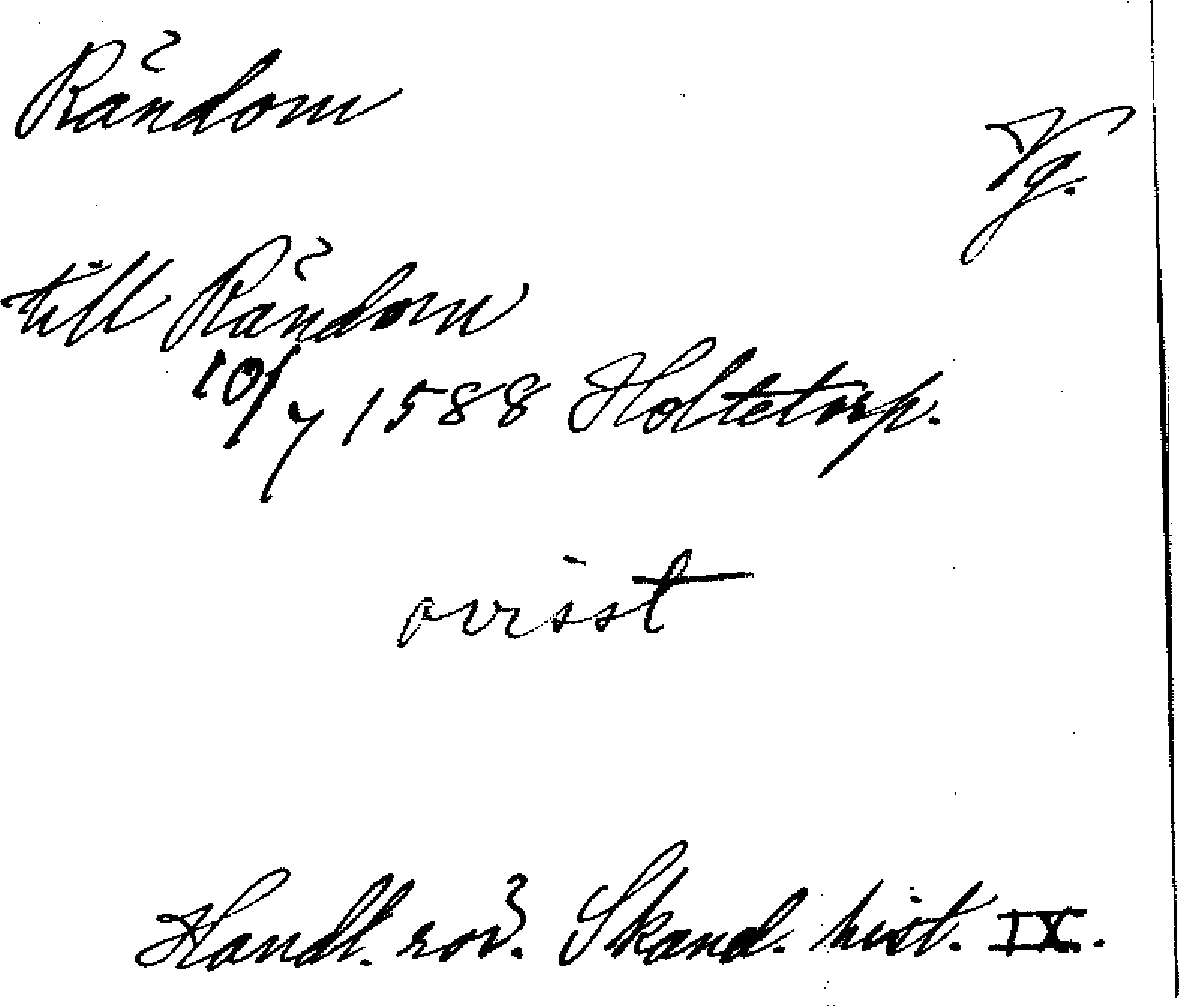 Råndom
Vg.
till Råndom
10/7 1588 Holtetorp.
ovisst
Handl. rör. Skand. hist. IX.